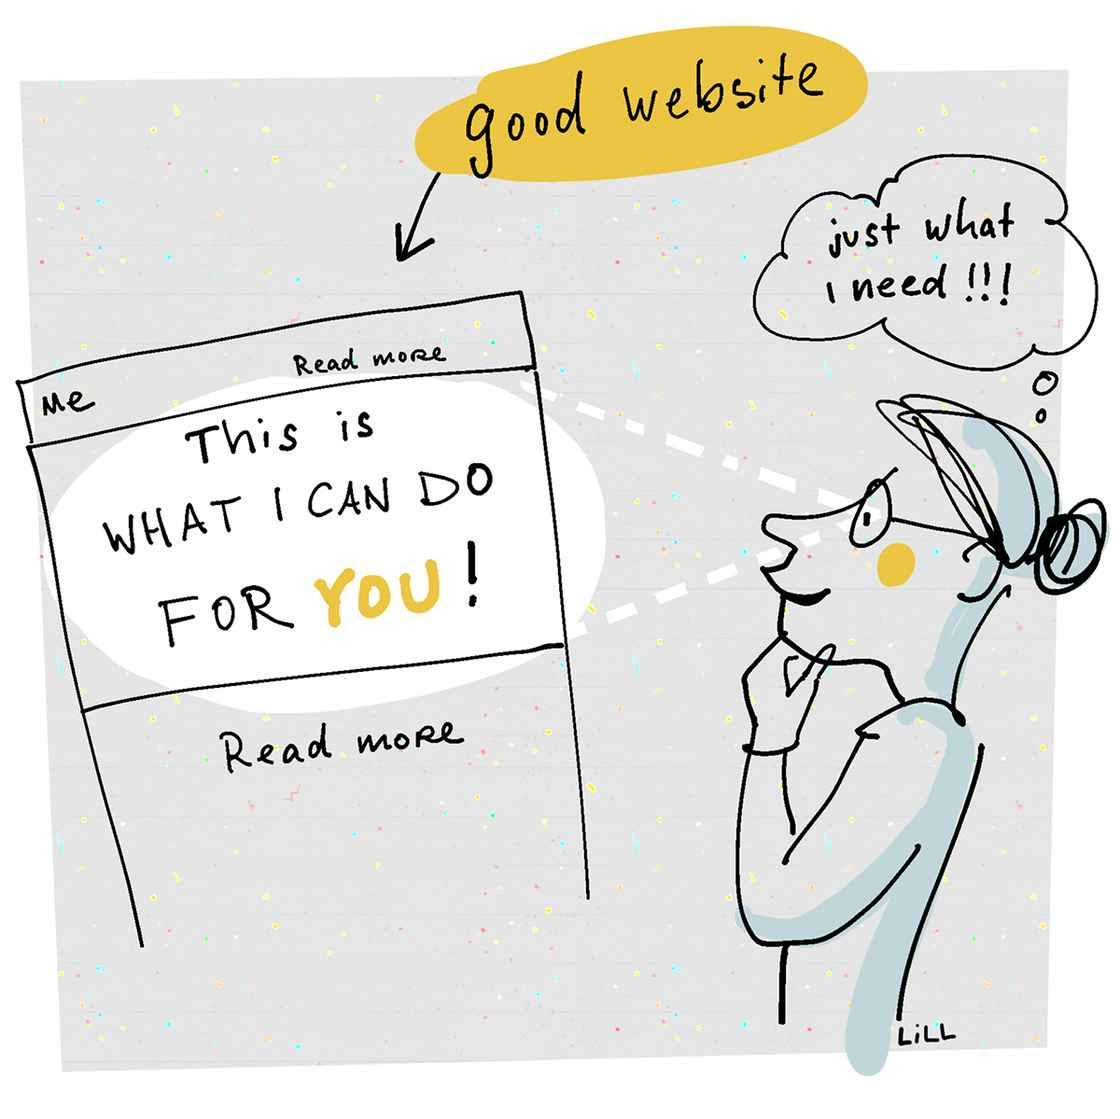 good website
just what
I need!!!
Read more
Me
This is
WHAT I CAN DO
FOR YOU!
Read more
LiLL